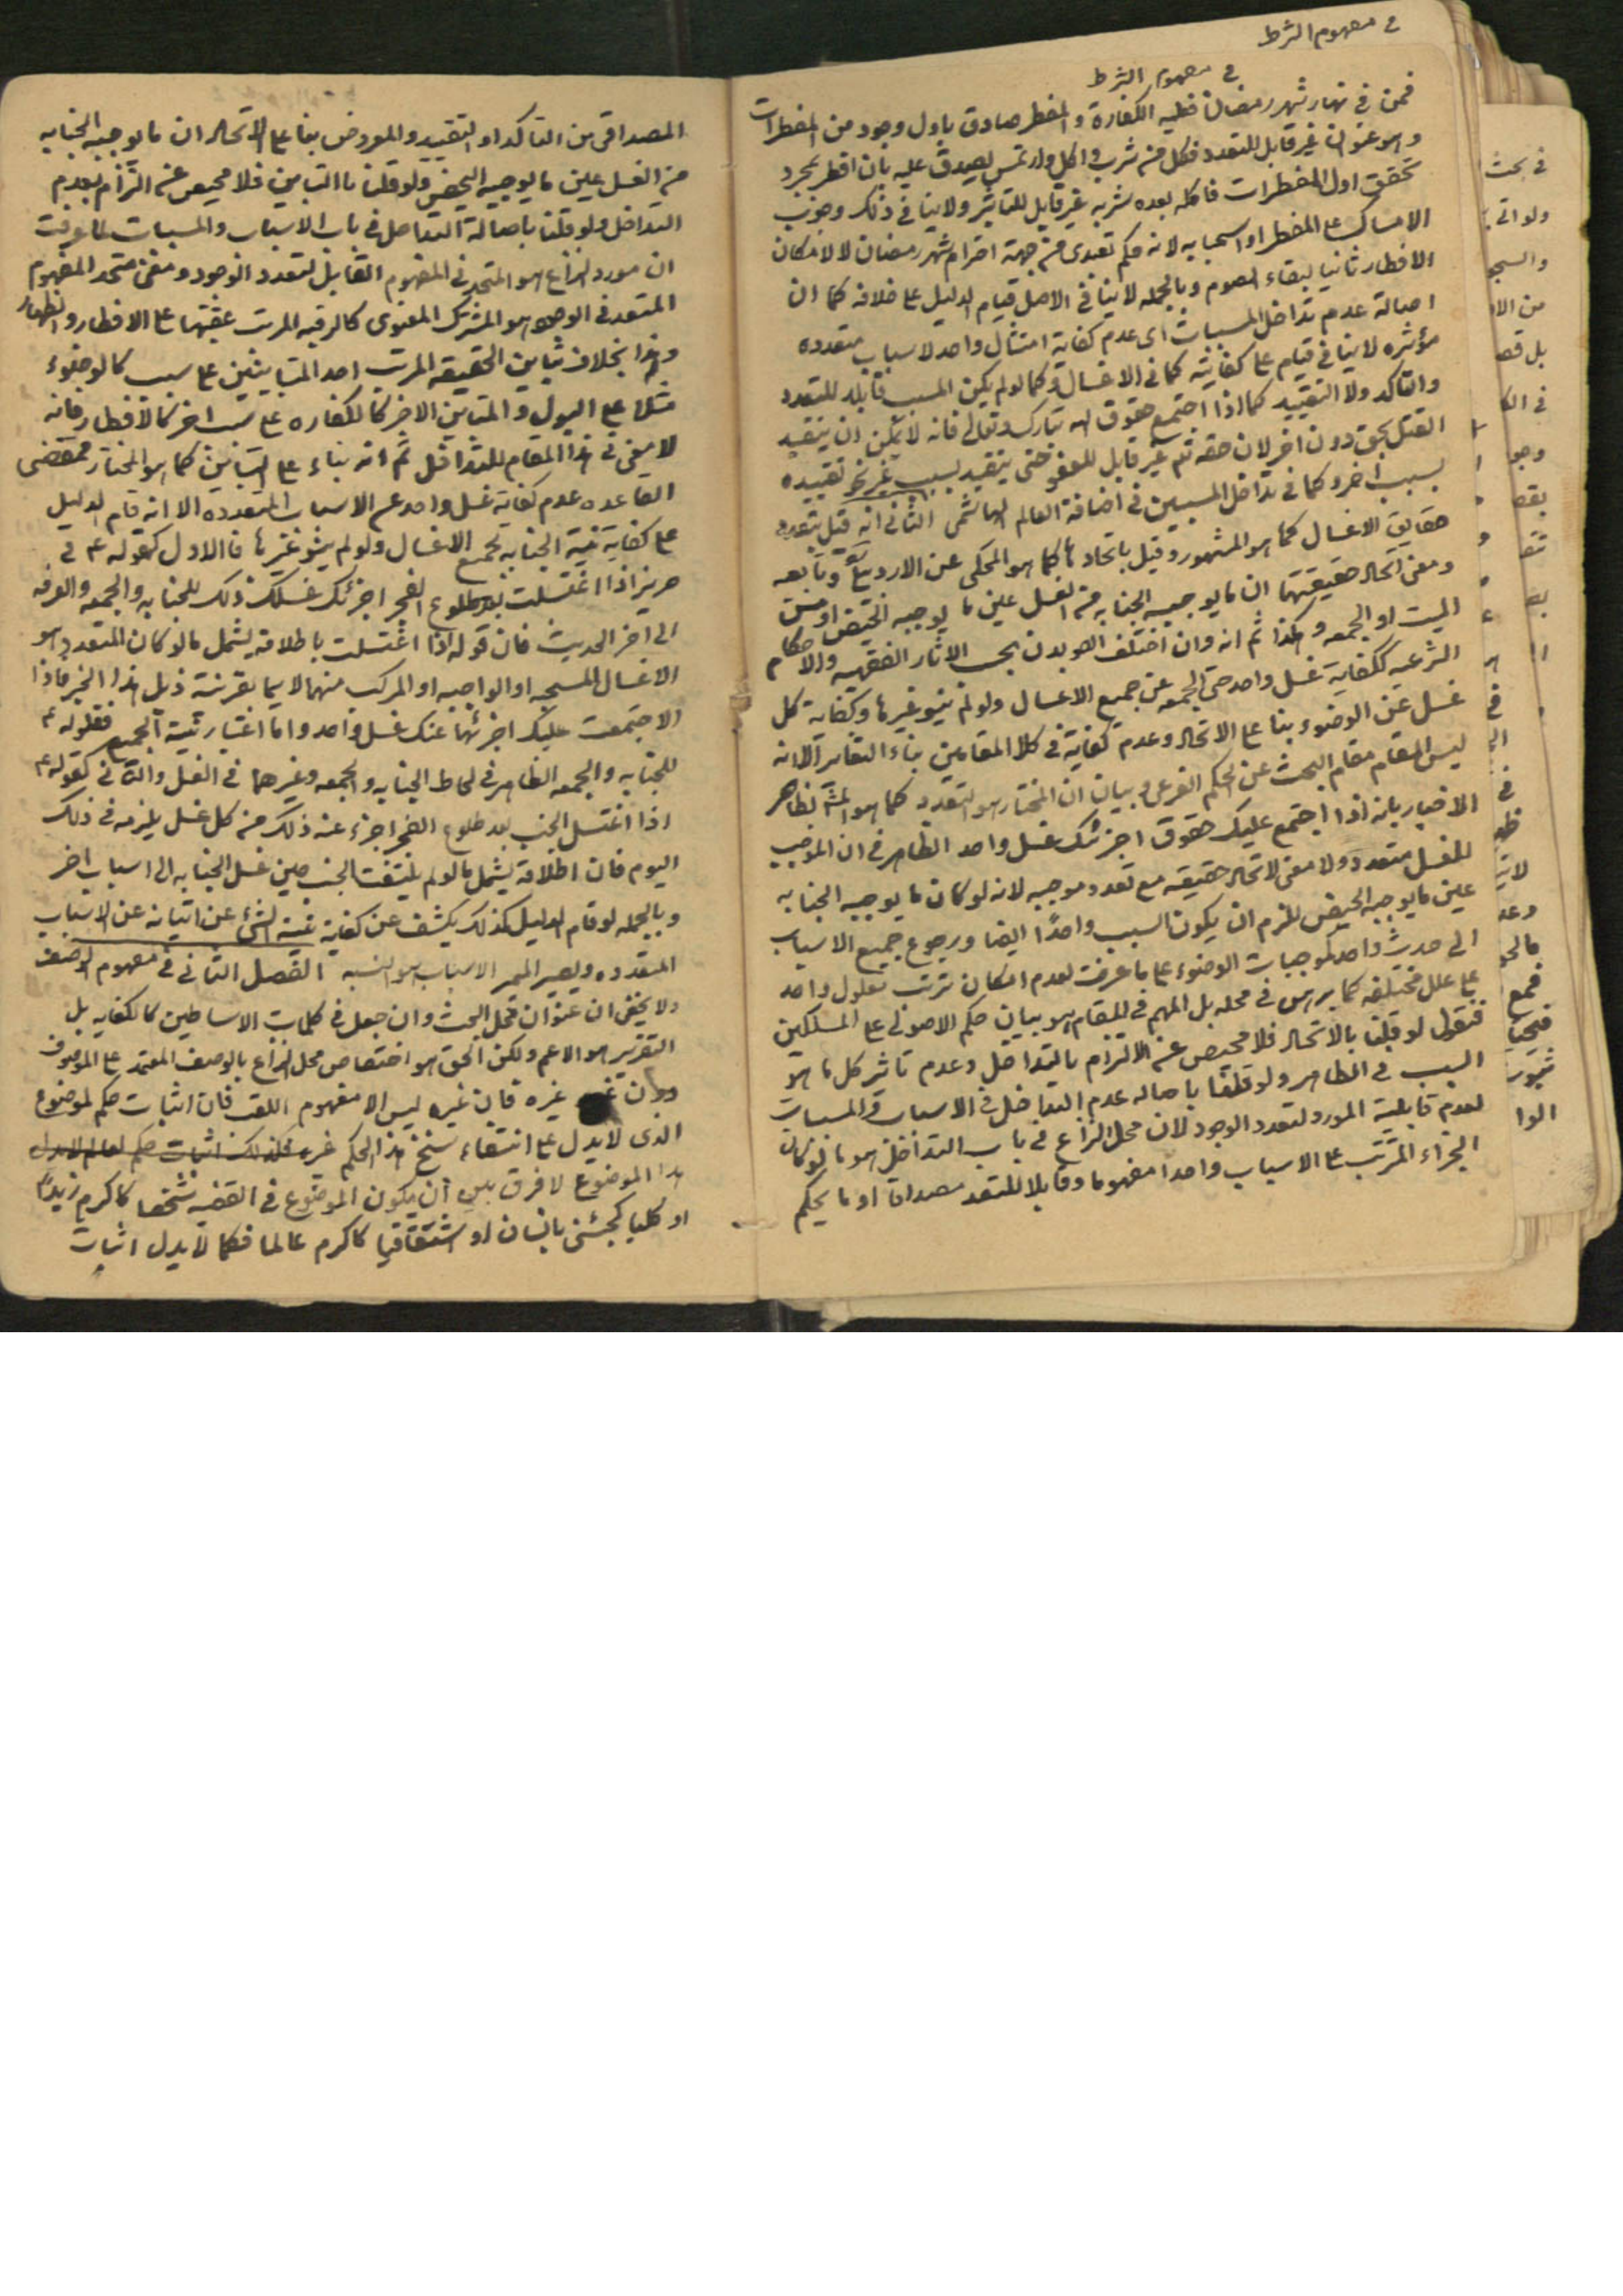 في مفهوم الشرط
في مفهوم الشرط
فمن في نهار شهر رمضان فعليه الكفارة والمفطر صادق باول وجود من المفطرات
وهو عنوان غير قابل للتعدد فكل من شرب و اكل وارتمس يصدق عليه بان افطر بمجرد
تحقق اول المفطرات فاكله بعده شربه غير قابل للتاثير ولا ينافي ذلك وجوب
الامساك على المفطر او استحبابه لانه حكم تعبدى من جهة احترام شهر رمضان لا لامكان
الافطار ثانيا لبقاء الصوم وبالجمله لا ينافي الاصل قيام الدليل على خلافه كما ان
اصالة عدم تداخل المسببات اى عدم كفاية امتثال واحد لاسباب متعدده
مؤثره لا ينافي قيام على كفايته كما في الاغسال وكما لو لم يكن المسبب قابلا للتعدد
والتاكد ولا التقييد كما اذا اجتمع حقوق الله تبارك وتعالى فانه لا يمكن ان يتقيد
القتل بحق دون اخر لان حقه تم غير قابل للعفو حتى يتقيد بسبب غير نحو تقييده
بسبب اخر وكما في تداخل المسببين في اضافة العالم الهاشمى الثانى انه قيل بتعدد
حقايق الاغسال كما هو المشهور وقيل باتحادها كما هو المحكى عن الاردبيلى وتابعه
ومعنى اتحاد حقيقتها ان ما يوجبه الجنابه من الغسل عين ما يوجبه الحيض او مس
الميت او الجمعه و هكذا ثم انه وان اختلف القولان بحسب الاثار الفقهيه والاحكام
الشرعيه ككفاية غسل واحد حتى الجمعه عن جميع الاغسال ولو لم ينو غيرها وكفاية كل
غسل عن الوضوء بناء على الاتحاد وعدم كفايته في كلا المقامين بناء التغاير الا انه
ليس المقام مقام البحث عن الحكم الفرعى وبيان ان المختار هو التعدد كما هو لظاهر
الاخبار بانه اذا اجتمع عليك حقوق اجزئك غسل واحد الظاهر في ان الموجب
للغسل متعدد ولا معنى لاتحاد حقيقه مع تعدد موجبه لانه لو كان ما يوجبه الجنابه
عين ما يوجبه الحيض للزم ان يكون السبب واحدًا ايضا ورجوع جميع الاسباب
الى حدث واحد كموجبات الوضوء على ما عرفت لعدم امكان ترتب معلول واحد
على علل مختلفه كما برهن في محله بل المهم في المقام هو بيان حكم الاصولى على المسلكين
فنقول لو قلنا بالاتحاد فلا محيص عن الالتزام بالتداخل وعدم تاثر كل ما هو
السبب في الظاهر ولو قلنا باصاله عدم التداخل في الاسباب والمسببات
لعدم قابلية المورد لتعدد الوجود لان محل النزاع في باب التداخل هو ما لو كان
الجزاء المترتب على الاسباب واحدا مفهوما وقابلا للتعدد مصداقا او ما يحكم
المصداقى من التاكد او التقييد والمفروض بناء على الاتحاد ان ما يوجبه الجنابه
من الغسل عين ما يوجبه الحيض ولو قلنا باالتباين فلا محيص عن التزام بعدم
التداخل ولو قلنا باصالة التداخل في باب الاسباب والمسببات لما عرفت
ان مورد النزاع هو المتحد في المفهوم القابل لتعدد الوجود ومعنى متحد المفهوم
المتعدد في الوجود هو المشترك المعنوى كالرقبه المرتب عتقها على الافطار والظهار
وهذا بخلاف تباين الحقيقه المرتب احد المتباينين على سبب كالوضوء
مثلا على البول والمتباين الاخر كالكفاره على سبب اخر كالافطار فانه
لا معنى في هذا المقام للتداخل ثم انه بناء على التباين كما هو المختار فمقتضى
القاعده عدم كفاية غسل واحد عن الاسباب المتعدده الا انه قام الدليل
على كفاية نية الجنابه لجميع الاغسال ولو لم ينو غيرها فالاول كقوله ع في
حريز اذا اغتسلت بعد طلوع الفجر اجزئك غسلك ذلك للجنابه والجمعه والعرفه
الى اخر الحديث فان قوله اذا اغتسلت باطلاقه يشمل ما لو كان المتعدد هو
الاغسال المستحبه او الواجبه او المركب منهما لا سيما بقرينة ذيل هذا الخبر فاذا
اجتمعت عليك اجزئها عنك غسل واحد واما اعتبار نية الجميع فلقوله ع
للجنابه والجمعه الظاهر في لحاظ الجنابه والجمعه وغيرهما في الغسل والثانى كقوله ع
اذا اغتسل الجنب بعد طلوع الفجر اجزء عنه ذلك من كل غسل يلزمه في ذلك
اليوم فان اطلاقه يشمل ما لو لم يلتفت الجنب حين غسل الجنابه الى اسباب اخر
وبالجمله لو قام الدليل كذلك يكشف عن كفاية نية الشئ عن اتيانه عن الاسباب
المتعدده ويصير الاسباب الفصل الثانى في مفهوم الوصف
ولا يخفى ان عنوان محل البحث وان جعل في كلمات الاساطين كالكفايه بل
التقرير هو الاعم ولكن الحق هو اختصاص محل النزاع بالوصف المعتمد على الموصوف
دون غيره فان غيره ليس الا مفهوم اللقب فان اثبات حكم لموضوع
الذى لا يدل على انتفاء سنخ هذا الحكم غير فكذلك اثبات حكم لعالم لا يدل
هذا الموضوع لا فرق بين ان يكون الموضوع في القضيه شخصا كاكرم زيدًا
او كليا كجئنى بانسان او اشتقاقيا كاكرم عالما فكما لا يدل اثبات
في بحث